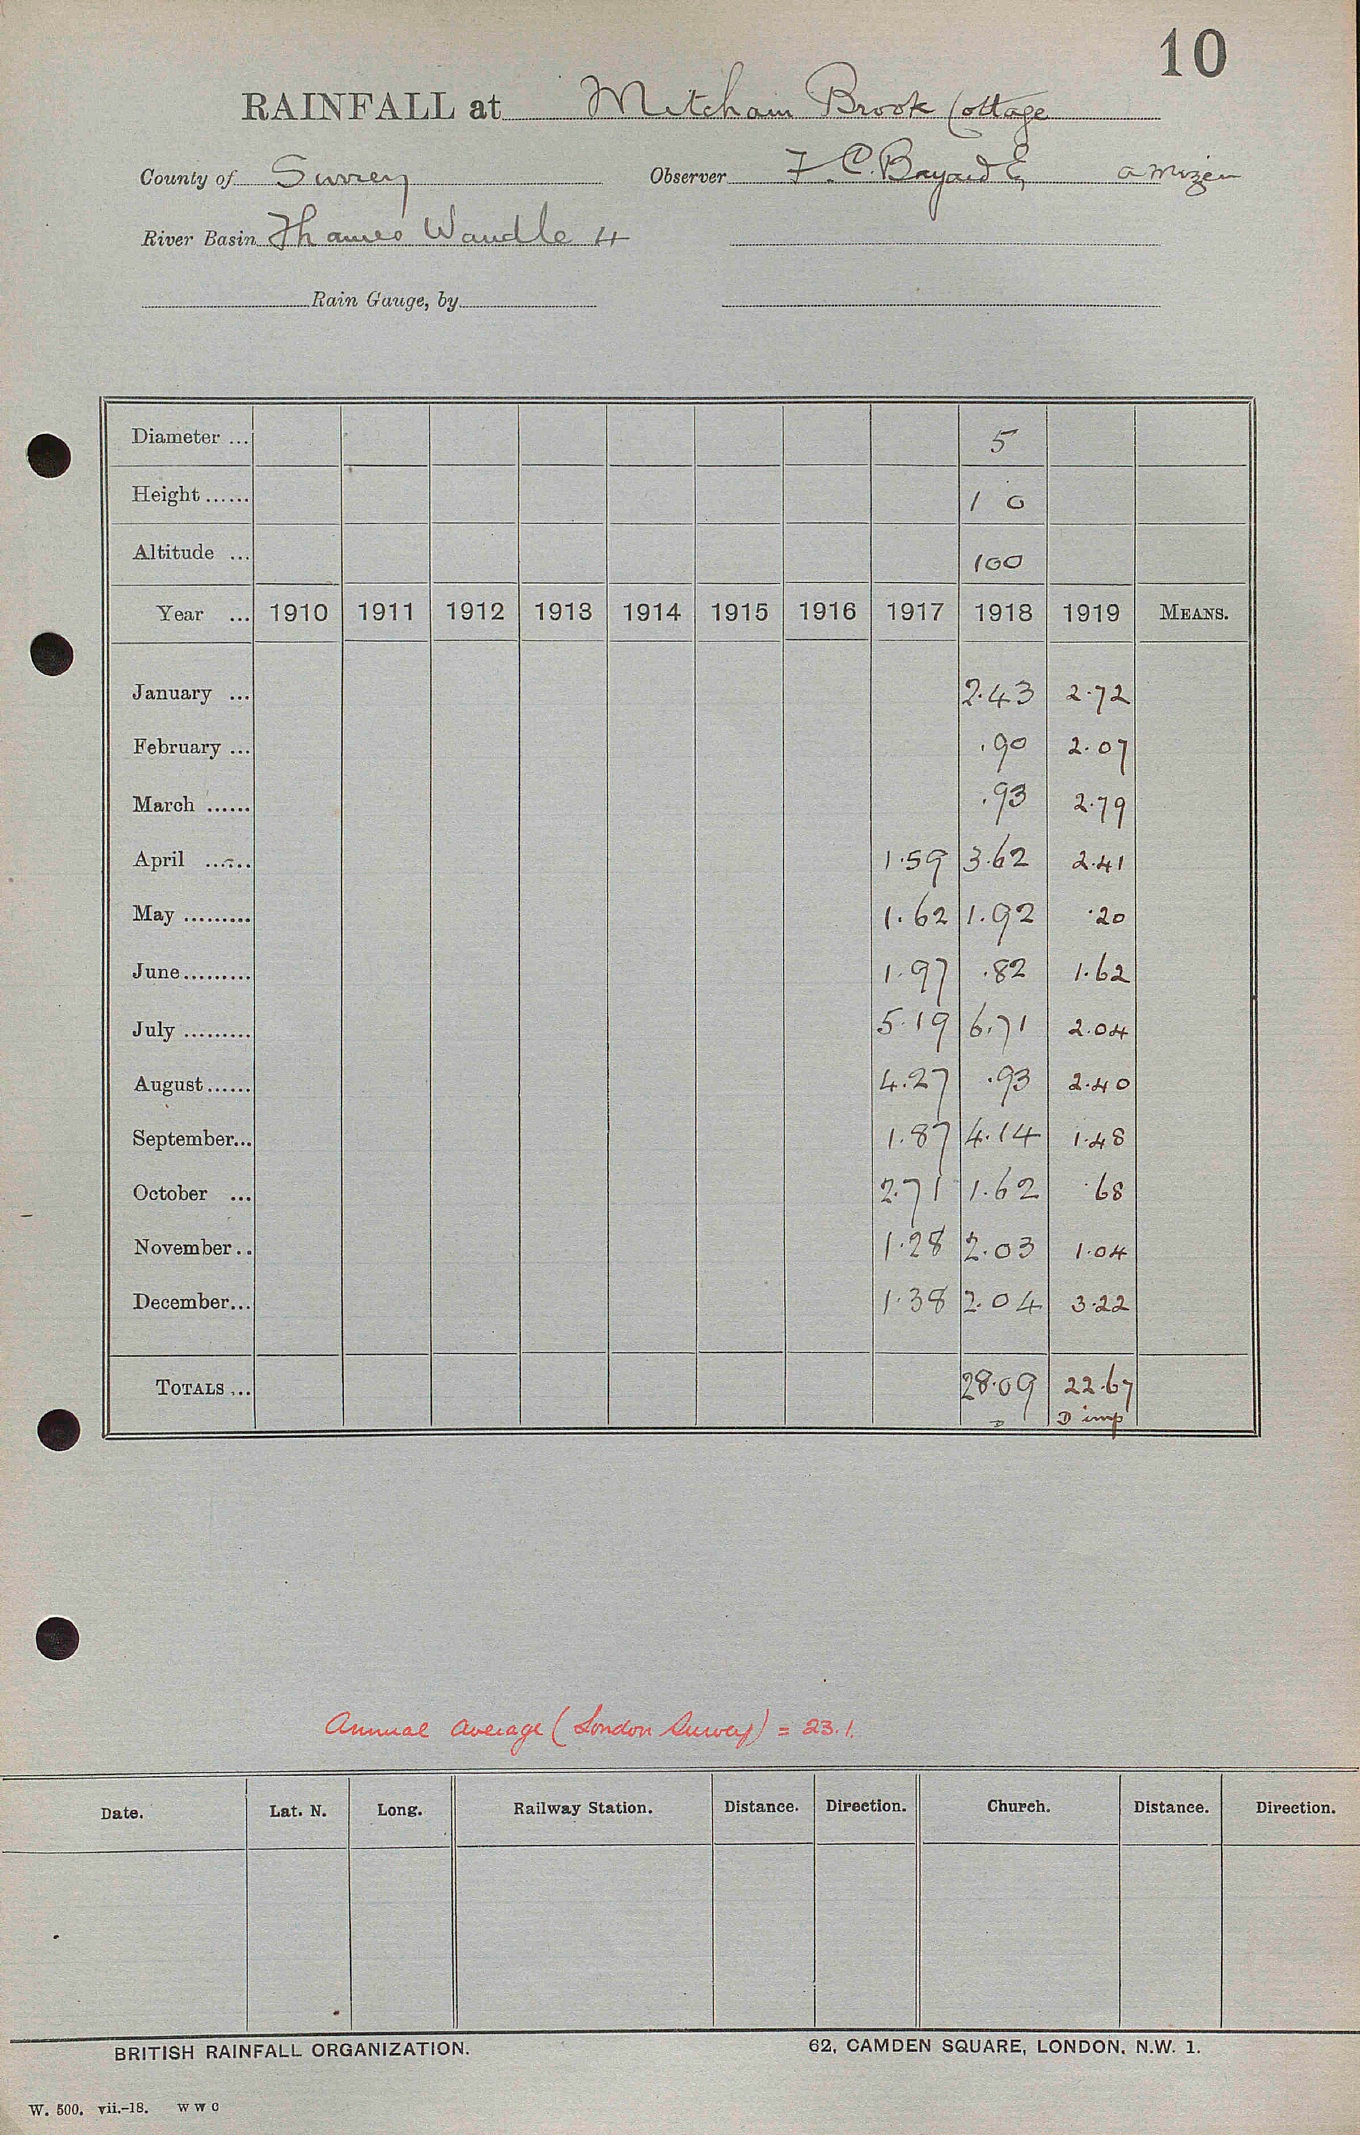 10
RAINFALL at Mitcham Brook Cottage
County of Surrey Observer F. C. Bayard Esq a mizen
River Basin Thames Wandle 4
Rain Gauge, by
Diameter ... 5
Height ...... 1 0
Altitude ... 100
Year ... 1910 1911 1912 1913 1914 1915 1916 1917 1918 1919 MEANS.
January ... 2.43 2.72
February ... .90 2.07
March ...... .93 2.79
April ...... 1.59 3.62 2.41
May ......... 1.62 1.92 .20
June ......... 1.97 .82 1.62
July ......... 5.19 6.71 2.04
August ...... 4.27 .93 2.40
September... 1.87 4.14 1.48
October ... 2.71 1.62 .68
November .. 1.28 2.03 1.04
December... 1.38 2.04 3.22
TOTALS ... 28.09 22.67
D D imp
Annual average (London Survey) = 23.1.
Date. Lat. N. Long. Railway Station. Distance. Direction. Church. Distance. Direction.
BRITISH RAINFALL ORGANIZATION. 62, CAMDEN SQUARE, LONDON, N.W. 1.
W. 500. vii.-18. W W C